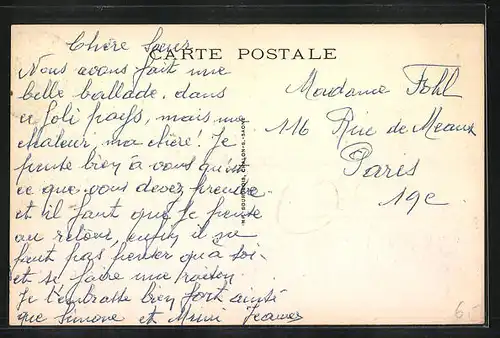 Chère Sœur
CARTE POSTALE
Nous avons fait une
belle ballade. dans
ce joli pays, mais une
chaleur, ma chère! Je
pense bien à vous qu'est
ce que vous devez prendre.
et il faut que je pense
au retour, enfin il ne
faut pas penser qu'à soi
et se faire une raison
Je t'embrasse bien fort ainsi
que Simone et Mimi Jeanne
Madame Fohl
116 Rue de Meaux
Paris
19e